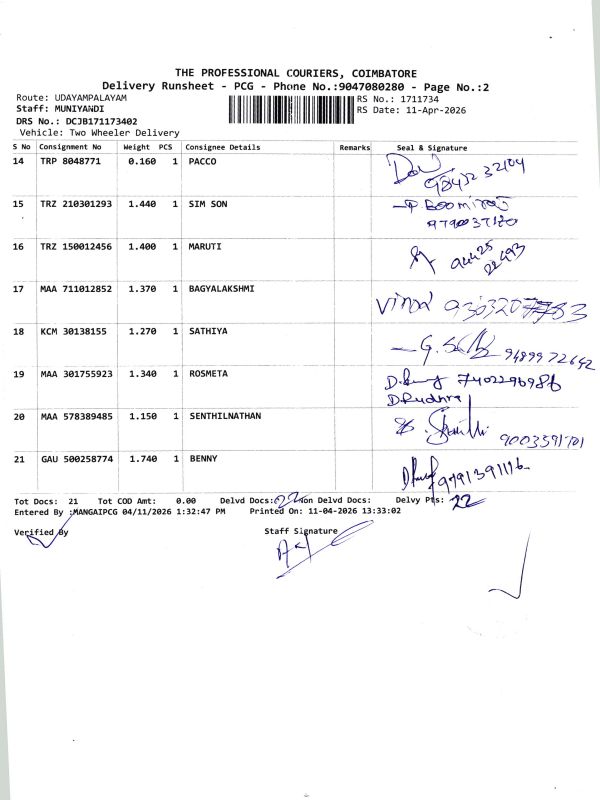 THE PROFESSIONAL COURIERS, COIMBATORE
Delivery Runsheet - PCG - Phone No.:9047080280 - Page No.:2
Route: UDAYAMPALAYAM
Staff: MUNIYANDI
DRS No.: DCJB171173402
Vehicle: Two Wheeler Delivery
RS No.: 1711734
RS Date: 11-Apr-2026
S No Consignment No Weight PCS Consignee Details Remarks Seal & Signature
14 TRP 8048771 0.160 1 PACCO
15 TRZ 210301293 1.440 1 SIM SON
9790037180
16 TRZ 150012456 1.400 1 MARUTI
94425
22493
17 MAA 711012852 1.370 1 BAGYALAKSHMI
Vinod
18 KCM 30138155 1.270 1 SATHIYA
9489972642
19 MAA 301755923 1.340 1 ROSMETA
7402296986
20 MAA 578389485 1.150 1 SENTHILNATHAN
9003591701
21 GAU 500258774 1.740 1 BENNY
9791391116
Tot Docs: 21 Tot COD Amt: 0.00 Delvd Docs: 22 Non Delvd Docs: Delvy Pts: 22
Entered By :MANGAIPCG 04/11/2026 1:32:47 PM Printed On: 11-04-2026 13:33:02
Verified By Staff Signature